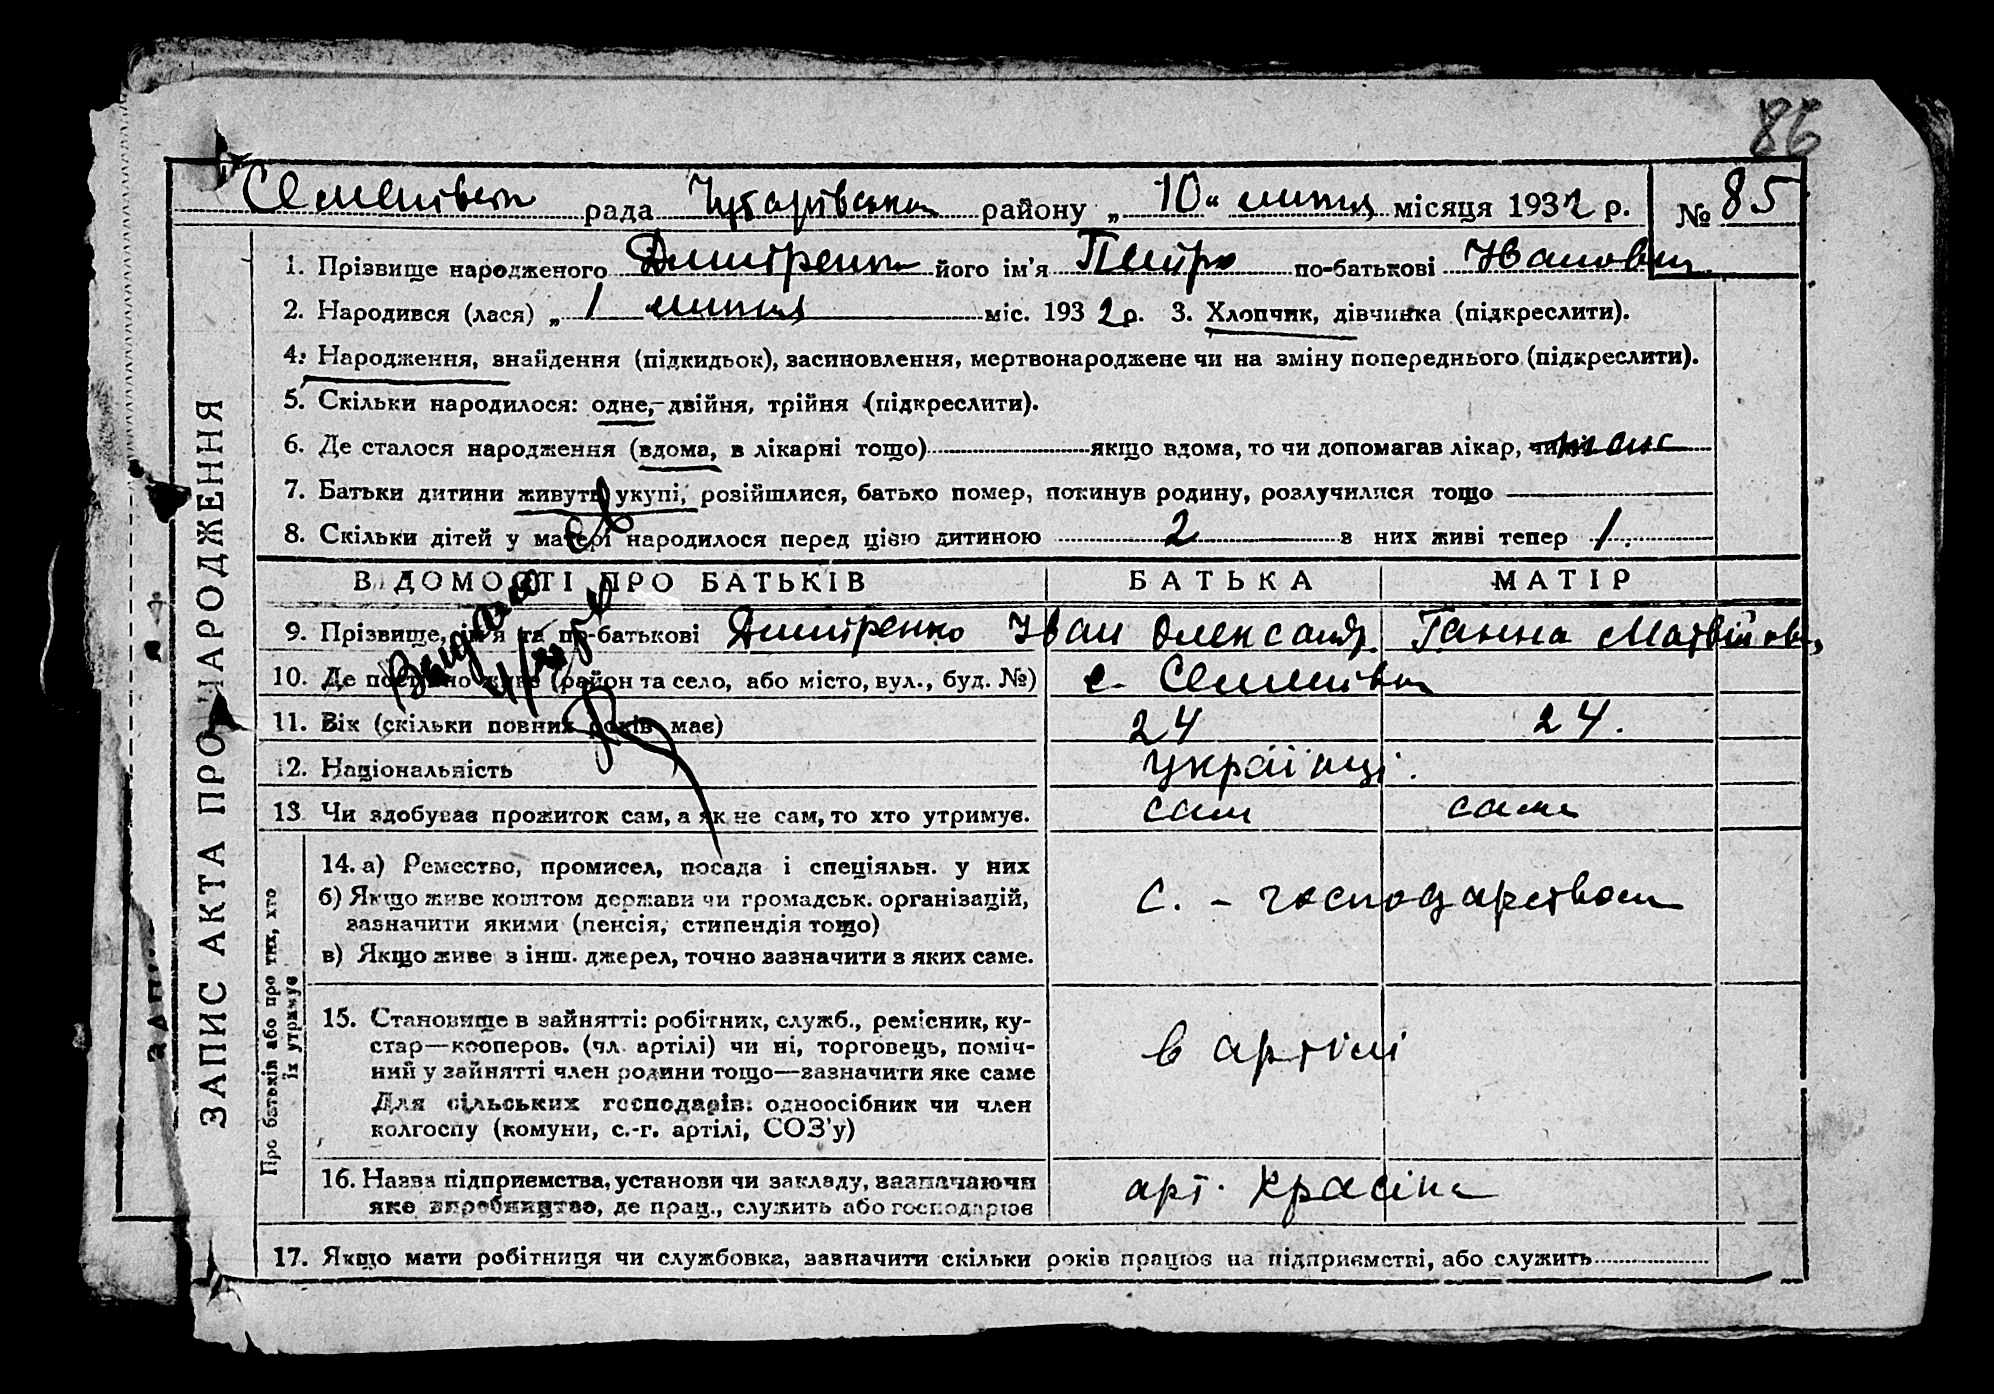 86
Семенівська рада Чутарівська району „ 10 “ липня місяця 1932 р. № 85
ЗАПИС АКТА ПРО НАРОДЖЕННЯ
1. Прізвище народженого Дмитренко його ім'я Петро по-батькові Іванович
2. Народився (лася) „ 1 липня міс. 1932 р. 3. Хлопчик, дівчинка (підкреслити).
4. Народження, знайдення (підкидьок), засиновлення, мертвонароджене чи на зміну попереднього (підкреслити).
5. Скільки народилося: одне, двійня, трійня (підкреслити).
6. Де сталося народження (вдома, в лікарні тощо) якщо вдома, то чи допомагав лікар,
7. Батьки дитини живуть укупі, розійшлися, батько помер, покинув родину, розлучилися тощо
8. Скільки дітей у матері народилося перед цією дитиною 2 з них живі тепер 1.
ВІДОМОСТІ ПРО БАТЬКІВ БАТЬКА МАТІР
9. Прізвище, ім'я та по-батькові Дмитренко Іван Олександр. Ганна Матвійов,
10. Де постійно живе (район та село, або місто, вул., буд. №) с. Семенівка
11. Вік (скільки повних років має) 24 24.
12. Національність українці.
13. Чи здобував прожиток сам, а як не сам, то хто утримує. сам сама
Про батьків або про тих, хто їх утримує
14. а) Ремество, промисел, посада і спеціяльн. у них
б) Якщо живе коштом держави чи громадськ. організацій,
зазначити якими (пенсія, стипендія тощо)
в) Якщо живе з інш. джерел, точно зазначити з яких саме.
с. - господарством
15. Становище в зайнятті: робітник, служб., ремісник, ку-
стар—кооперов. (чл. артілі) чи ні, торговець, поміч-
ний у зайнятті член родини тощо—зазначити яке саме
Для сільських господарів: одноосібник чи член
колгоспу (комуни, с.-г. артілі, СОЗ'у)
в артілі
16. Назва підприємства, установи чи закладу, зазначаючи
яке виробництво, де прац., служить або господарює
арт. Красіна
17. Якщо мати робітниця чи службовка, зазначити скільки років працює на підприємстві, або служить
Видано